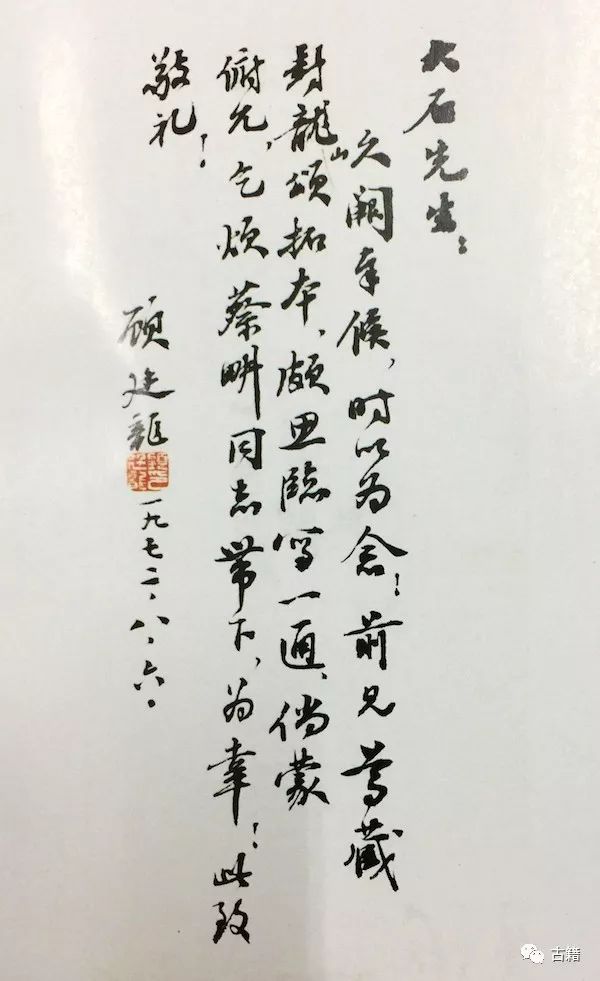 大石先生：
久阙奉候，时以为念！前见尊藏
封龙山颂拓本，颇思临写一通，倘蒙
俯允，乞烦蔡畊同志带下，为幸！此致
敬礼！
顾廷龙 一九七二、八、六、
古籍